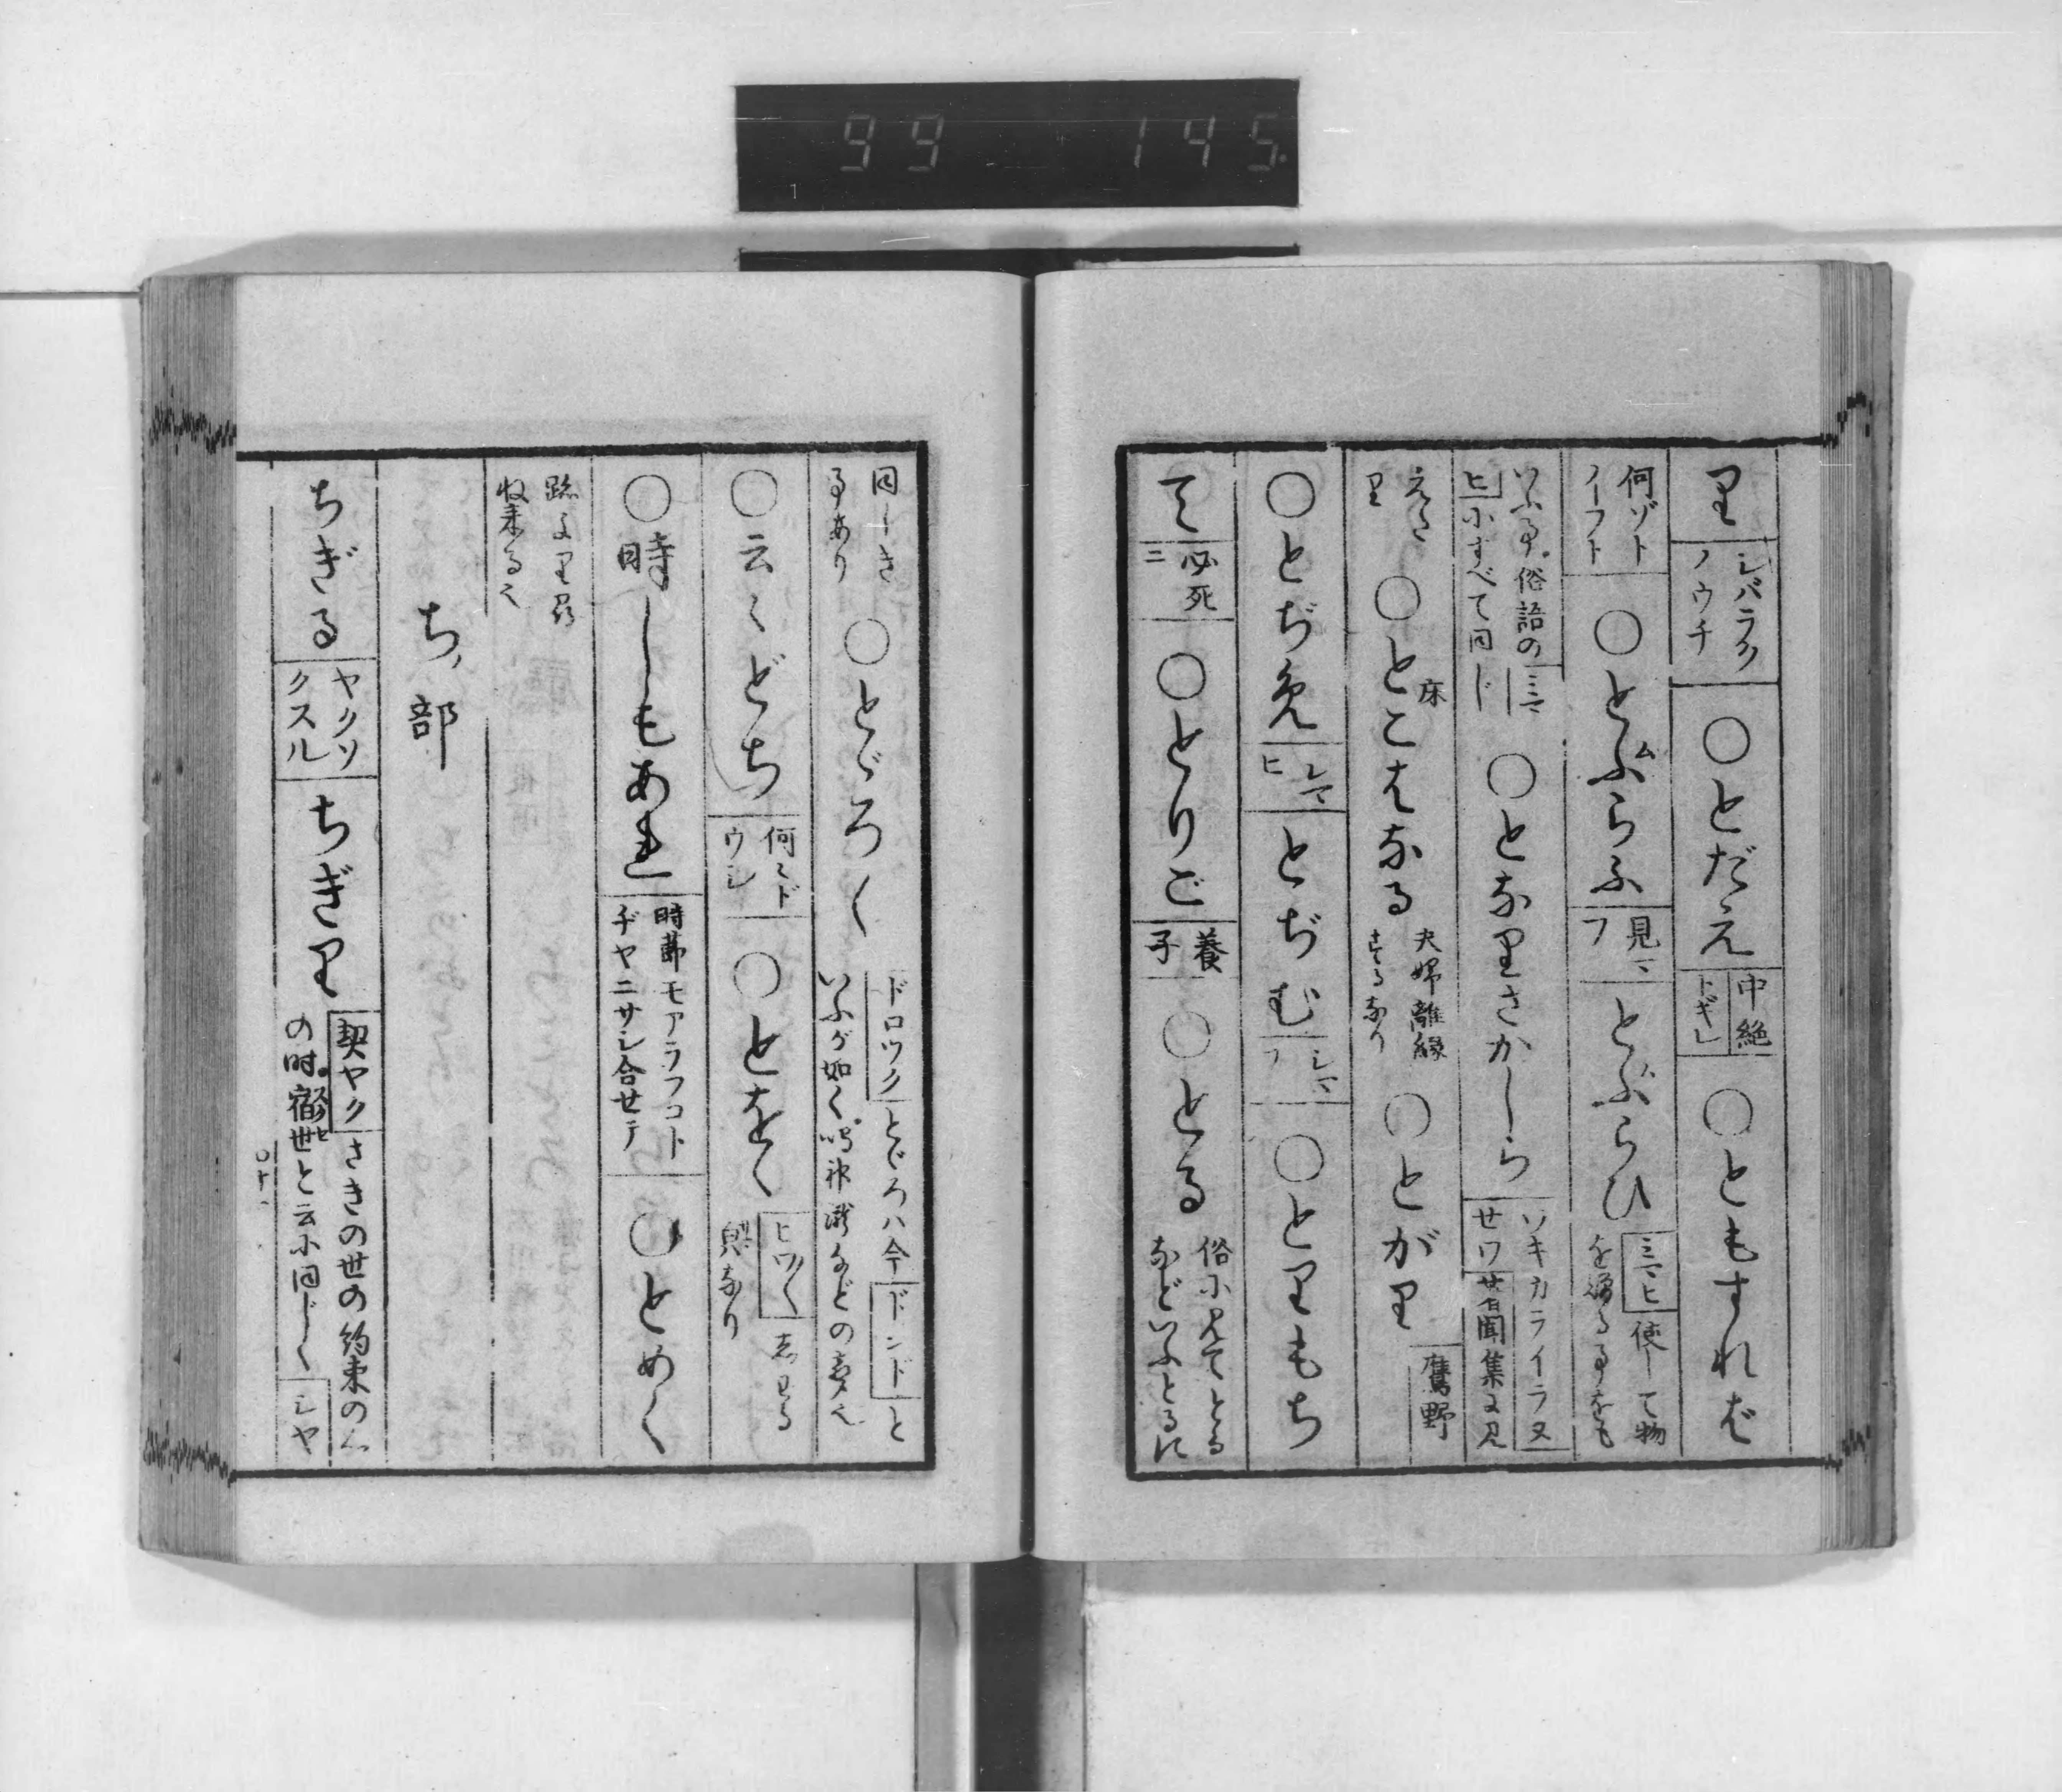 99 145
り シバラクノウチ ○とだえ 中絶 トギレ ○ともすれば
何ゾトノーフト ○とぶらふ 見マフ とぶらひ ミマヒ 使して物を贈る事をも
いふ事。俗語の ミマヒ 小すべて同じ ○となりさかしら ソキカライラヌセワ 著聞集に見
えたり ○とこはなる 床 夫婦離縁するなり ○とがり 鷹野
○とぢめ シマヒ とぢむ シマフ ○とりもち
て 必死ニ ○とりご 養子 ○とる 俗小見てとるなどいふとるに
同じき事あり ○とゞろく ドロツク とゞろハ今 ドンド といふが如く鳴神瀧などの声也
○云々どち 何々ドウシ ○とをゝ ヒワ〳〵 しわる貌なり
○時しもあれ 時節モアラフコトヂヤニサシ合セテ ○とめく
跡より尋収来る也
ち部
ちぎる ヤクソクスル ちぎり 契ヤク さきの世の約束の心の時。宿世と云小同じく シヤ